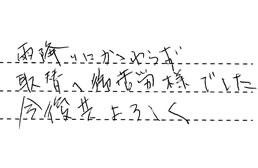 雨降りにかかわらず
取替へ御苦労様でした
今後共よろしく